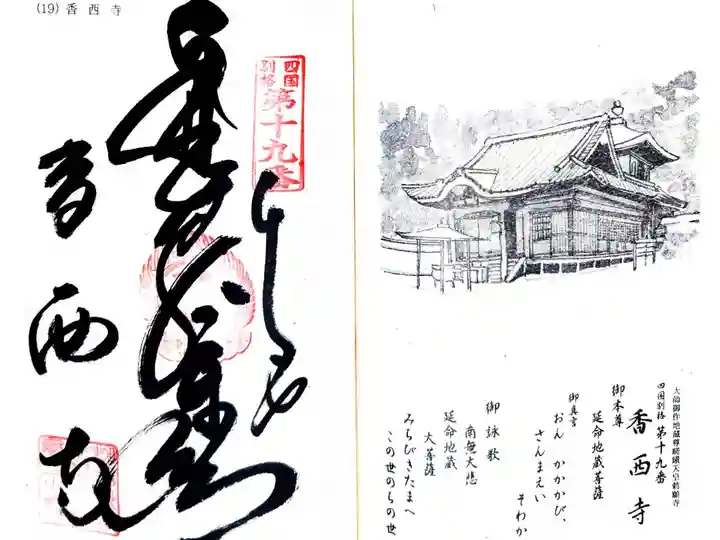 (19) 香西寺
四国
別格
第十九番
奉拝
香西寺
大師御作地蔵尊嵯峨天皇勅願寺
四国別格 第十九番
香西寺
御本尊
延命地蔵菩薩
御真言
おん かかかび、
さんまえい
そわか
御詠歌
南無大悲
延命地蔵
大菩薩
みちびきたまへ
この世のちの世